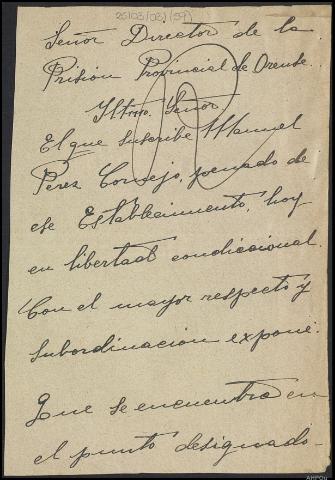 25/03/03/(59)
Señor Director de la
Prision Provincial de Orense.
Iltmo. Señor
El que suscribe Manuel
Perez Consejo, penado de
ese Establecimiento, hoy
en libertad condiccional.
Con el mayor respecto y
subordinacion expone.
Que se encuentra en
el punto designado-
AHPOu